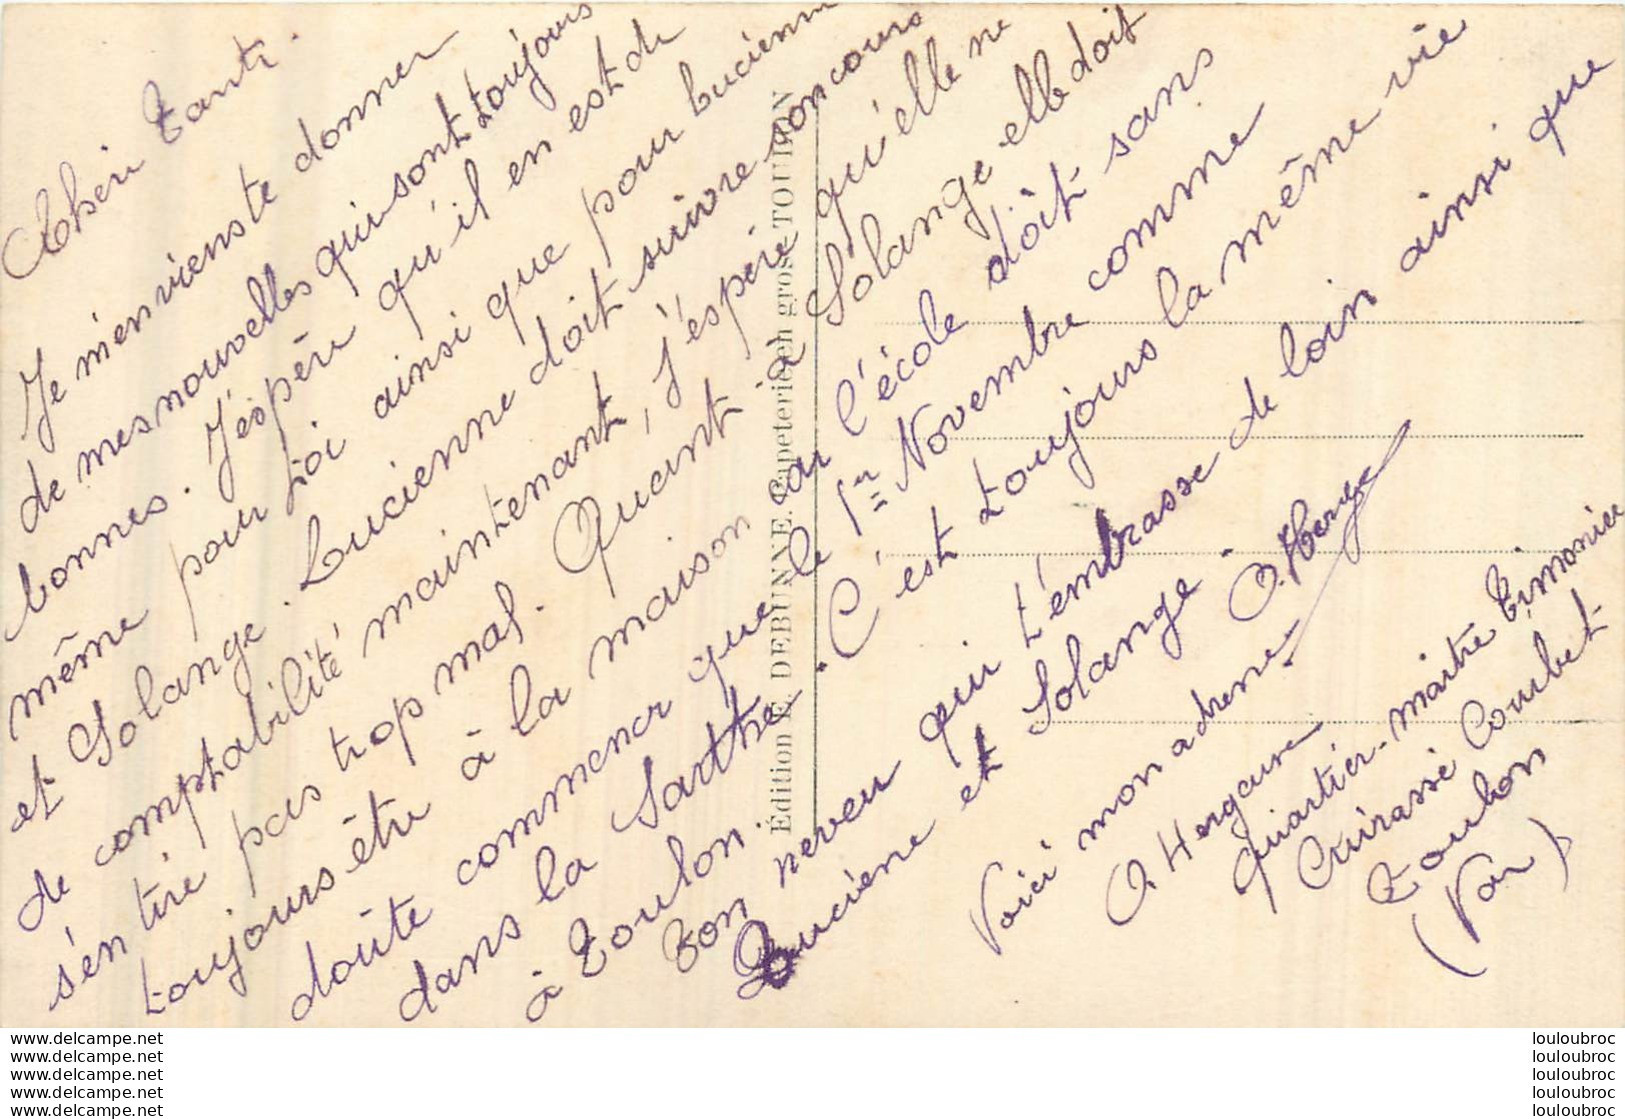 Chère Tante.
Je m'en viens te donner
de mes nouvelles qui sont toujours
bonnes. J'espère qu'il en est de
même pour toi ainsi que pour Lucienne
et Solange. Lucienne doit suivre son cours
de comptabilité maintenant, j'espère qu'elle ne
s'en tire pas trop mal. Quant à Solange elle doit
toujours être à la maison car l'école doit sans
doûte commencer que le 1er Novembre comme
dans la Sarthe. C'est toujours la même vie
à Toulon.
Ton neveu qui t'embrasse de loin ainsi que
Lucienne et Solange.
Voici mon adresse
Quartier-maître Timonier
Cuirassé Courbet
Toulon
(Var)
Édition E. DEBUNNE. Papeterie en gros. TOULON
louloubroc.net
louloubroc.net
louloubroc.net
louloubroc.net
louloubroc.net
louloubroc
louloubroc
louloubroc
louloubroc
louloubroc